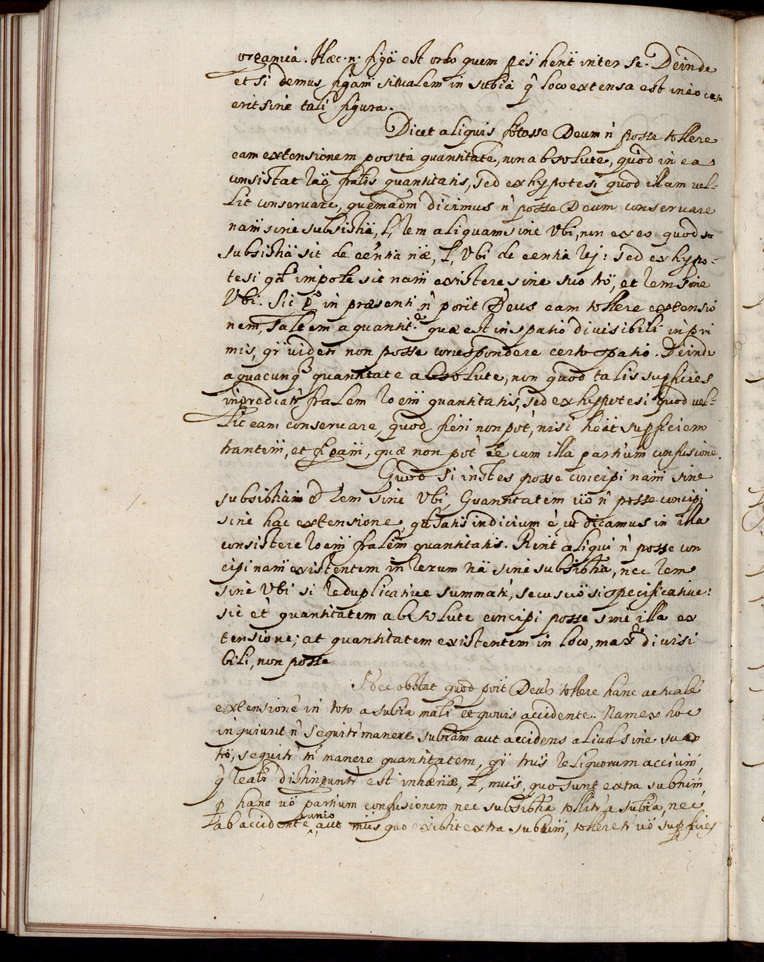 organica. Hæc .n. figã est ordo quem ptẽs hẽnt inter se. Deinde
et si demus figam situalem in subtã q̃ loco extensa est in eo
erit sine tali figura.
Dicet aliquis fortasse Deum ñ posse tollere
eam extensionem posita quantitate, non absolute, quod in ea
consistat rãõ fralis quantitatis, sed ex hypotesi quod illam vel-
lit conservare, quemadm̃ dicimus ñ posse Deum conservare
nam̃ sine subsistã, l, rem aliquam sine Ubi, non ex eo quod
subsistã sit de eẽntia næ, l, Ubi de eentia rej: sed ex hypo-
tesi qd̃ imposle sit nam̃ existere sine suo tr̃o, et rem sine
Ubi. Sic in præsenti ñ potit Deus eam tollere extensio
nem, saltem a quantit.e quæ est in spatio divisibili in pri
mis, q̃ videtr̃ non posse correspondere certo spatio. Deinde
a quacunq̃ quantitate absolute, non quod talis supficies
ingrediatr̃ fralem rõem quantitatis, sed ex hypotesi quod vel-
lit eam conservare, quod fieri non pot, nisi heat supficiem
trantem̃, et figam̃, quæ non pot ẽe cum illa partium confusione.
Quod si instes posse concipi nam̃ sine
subsistiam et rem sine Ubi Quantitatem vo ñ posse concipi
sine hac extensione, qd̃ satis indicium ẽ ut dicamus in illa
consistere rõem fralem̃ quantitatis. Rent aliqui ñ posse con
cipi nam̃ existentem in rerum nã sine subsistia, nec rem
sine Ubi si reduplicative sumatr̃, secus vo si specificative:
sic et quantitatem absolute concipi posse sine illa ex
tensione; at quantitatem existentem in loco, max.e divisi
bili, non posse
Nec obstat quod potit Deus tollere hanc actualẽ
extensionẽ in toto a subtia mali et quovis accidente. Nam ex hoc
inquiunt ñ sequitr̃ manere subtiam aut accidens aliud sine suo
tr̃o, sequitr̃ tñ manere quantitatem,
q̃ realr̃ distinguntr̃ est inhæñæ, l, quo sunt extra subm̃,
p hanc vo partium confusionem nec subsistia tollitr̃ a subtia, nec
ab accidente unio, aut quo existit extra subm̃, tolleretr̃ vo supficies